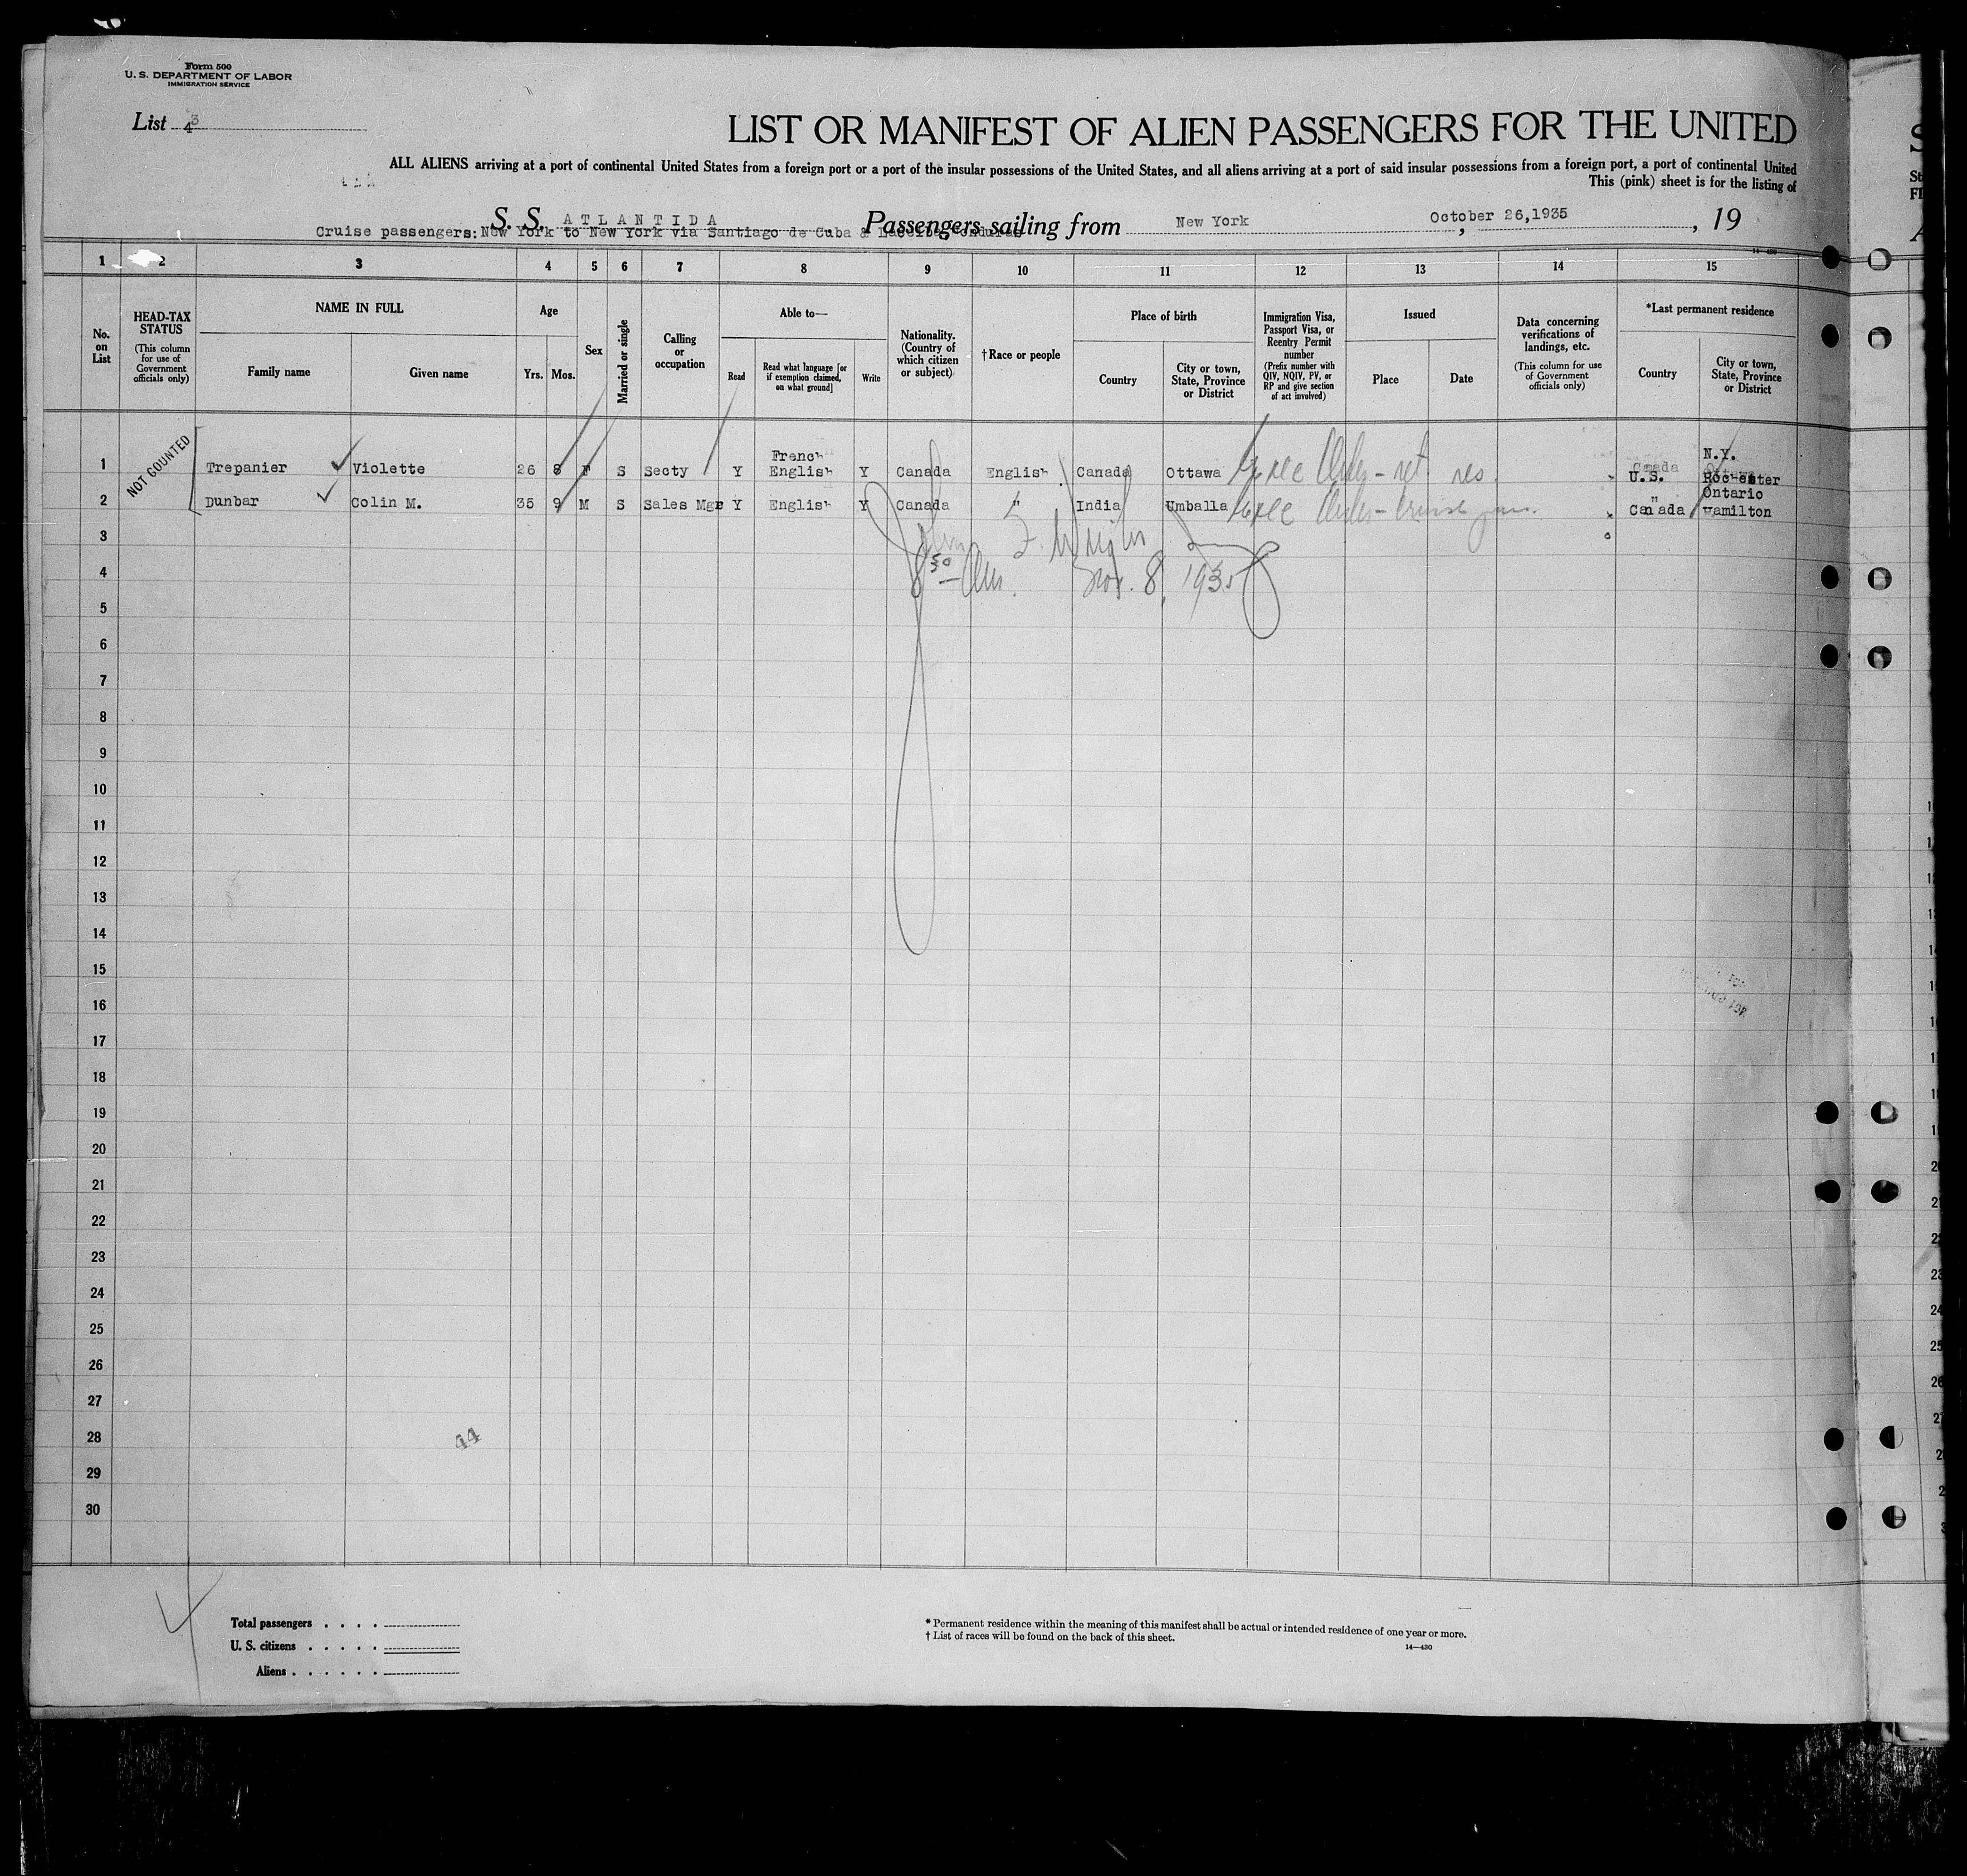 Form 500
U. S. DEPARTMENT OF LABOR
IMMIGRATION SERVICE
List 3
4
LIST OR MANIFEST OF ALIEN PASSENGERS FOR THE UNITED
ALL ALIENS arriving at a port of continental United States from a foreign port or a port of the insular possessions of the United States, and all aliens arriving at a port of said insular possessions from a foreign port, a port of continental United
This (pink) sheet is for the listing of
S. S. ATLANTIDA Passengers sailing from New York, October 26,1935, 19
Cruise passengers: New York to New York via Santiago de Cuba & Laceiba, Honduras
14-430
1 2 3 4 5 6 7 8 9 10 11 12 13 14 15
No. on List
HEAD-TAX STATUS
(This column for use of Government officials only)
NAME IN FULL
Family name
Given name
Age
Yrs.
Mos.
Sex
Married or single
Calling or occupation
Able to—
Read
Read what language [or if exemption claimed, on what ground]
Write
Nationality. (Country of which citizen or subject)
†Race or people
Place of birth
Country
City or town, State, Province or District
Immigration Visa, Passport Visa, or Reentry Permit number
(Prefix number with QIV, NQIV, PV, or RP and give section of act involved)
Issued
Place
Date
Data concerning verifications of landings, etc.
(This column for use of Government officials only)
*Last permanent residence
Country
City or town, State, Province or District
NOT COUNTED
1 Trepanier Violette 26 8 F S Secty Y French English Y Canada English Canada Ottawa Exec Order - ret. res. Canada U.S. Ottawa N.Y. Rochester
2 Dunbar Colin M. 35 9 M S Sales Mgr Y English Y Canada " India Umballa Exec Order - Cruise " Canada Ontario Hamilton
3
F. Wright
4
8 30 - Am. Nov. 8, 1935
5
6
7
8
9
10
11
12
13
14
15
16
17
18
19
20
21
22
23
24
25
26
27
28
29
30
44
Total passengers
U. S. citizens
Aliens
* Permanent residence within the meaning of this manifest shall be actual or intended residence of one year or more.
† List of races will be found on the back of this sheet.
14—430